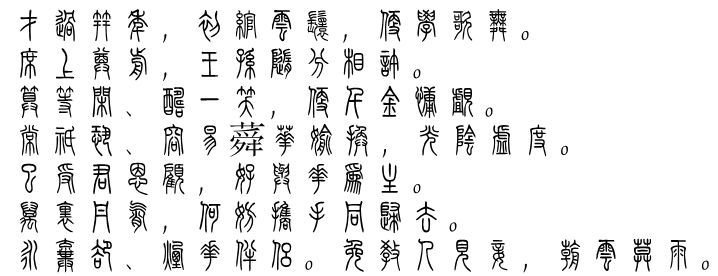 才過笄年,初綰雲鬟,便學歌舞。
席上尊前,王孫隨分相許。
算等閑、酬一笑,便千金慵覷。
常祇恐、容易蕣華偷換,光陰虛度。
已受君恩顧,好與花為主。
萬里丹霄,何妨攜手同歸去。
永棄卻、煙花伴侶。免教人見妾,朝雲暮雨。